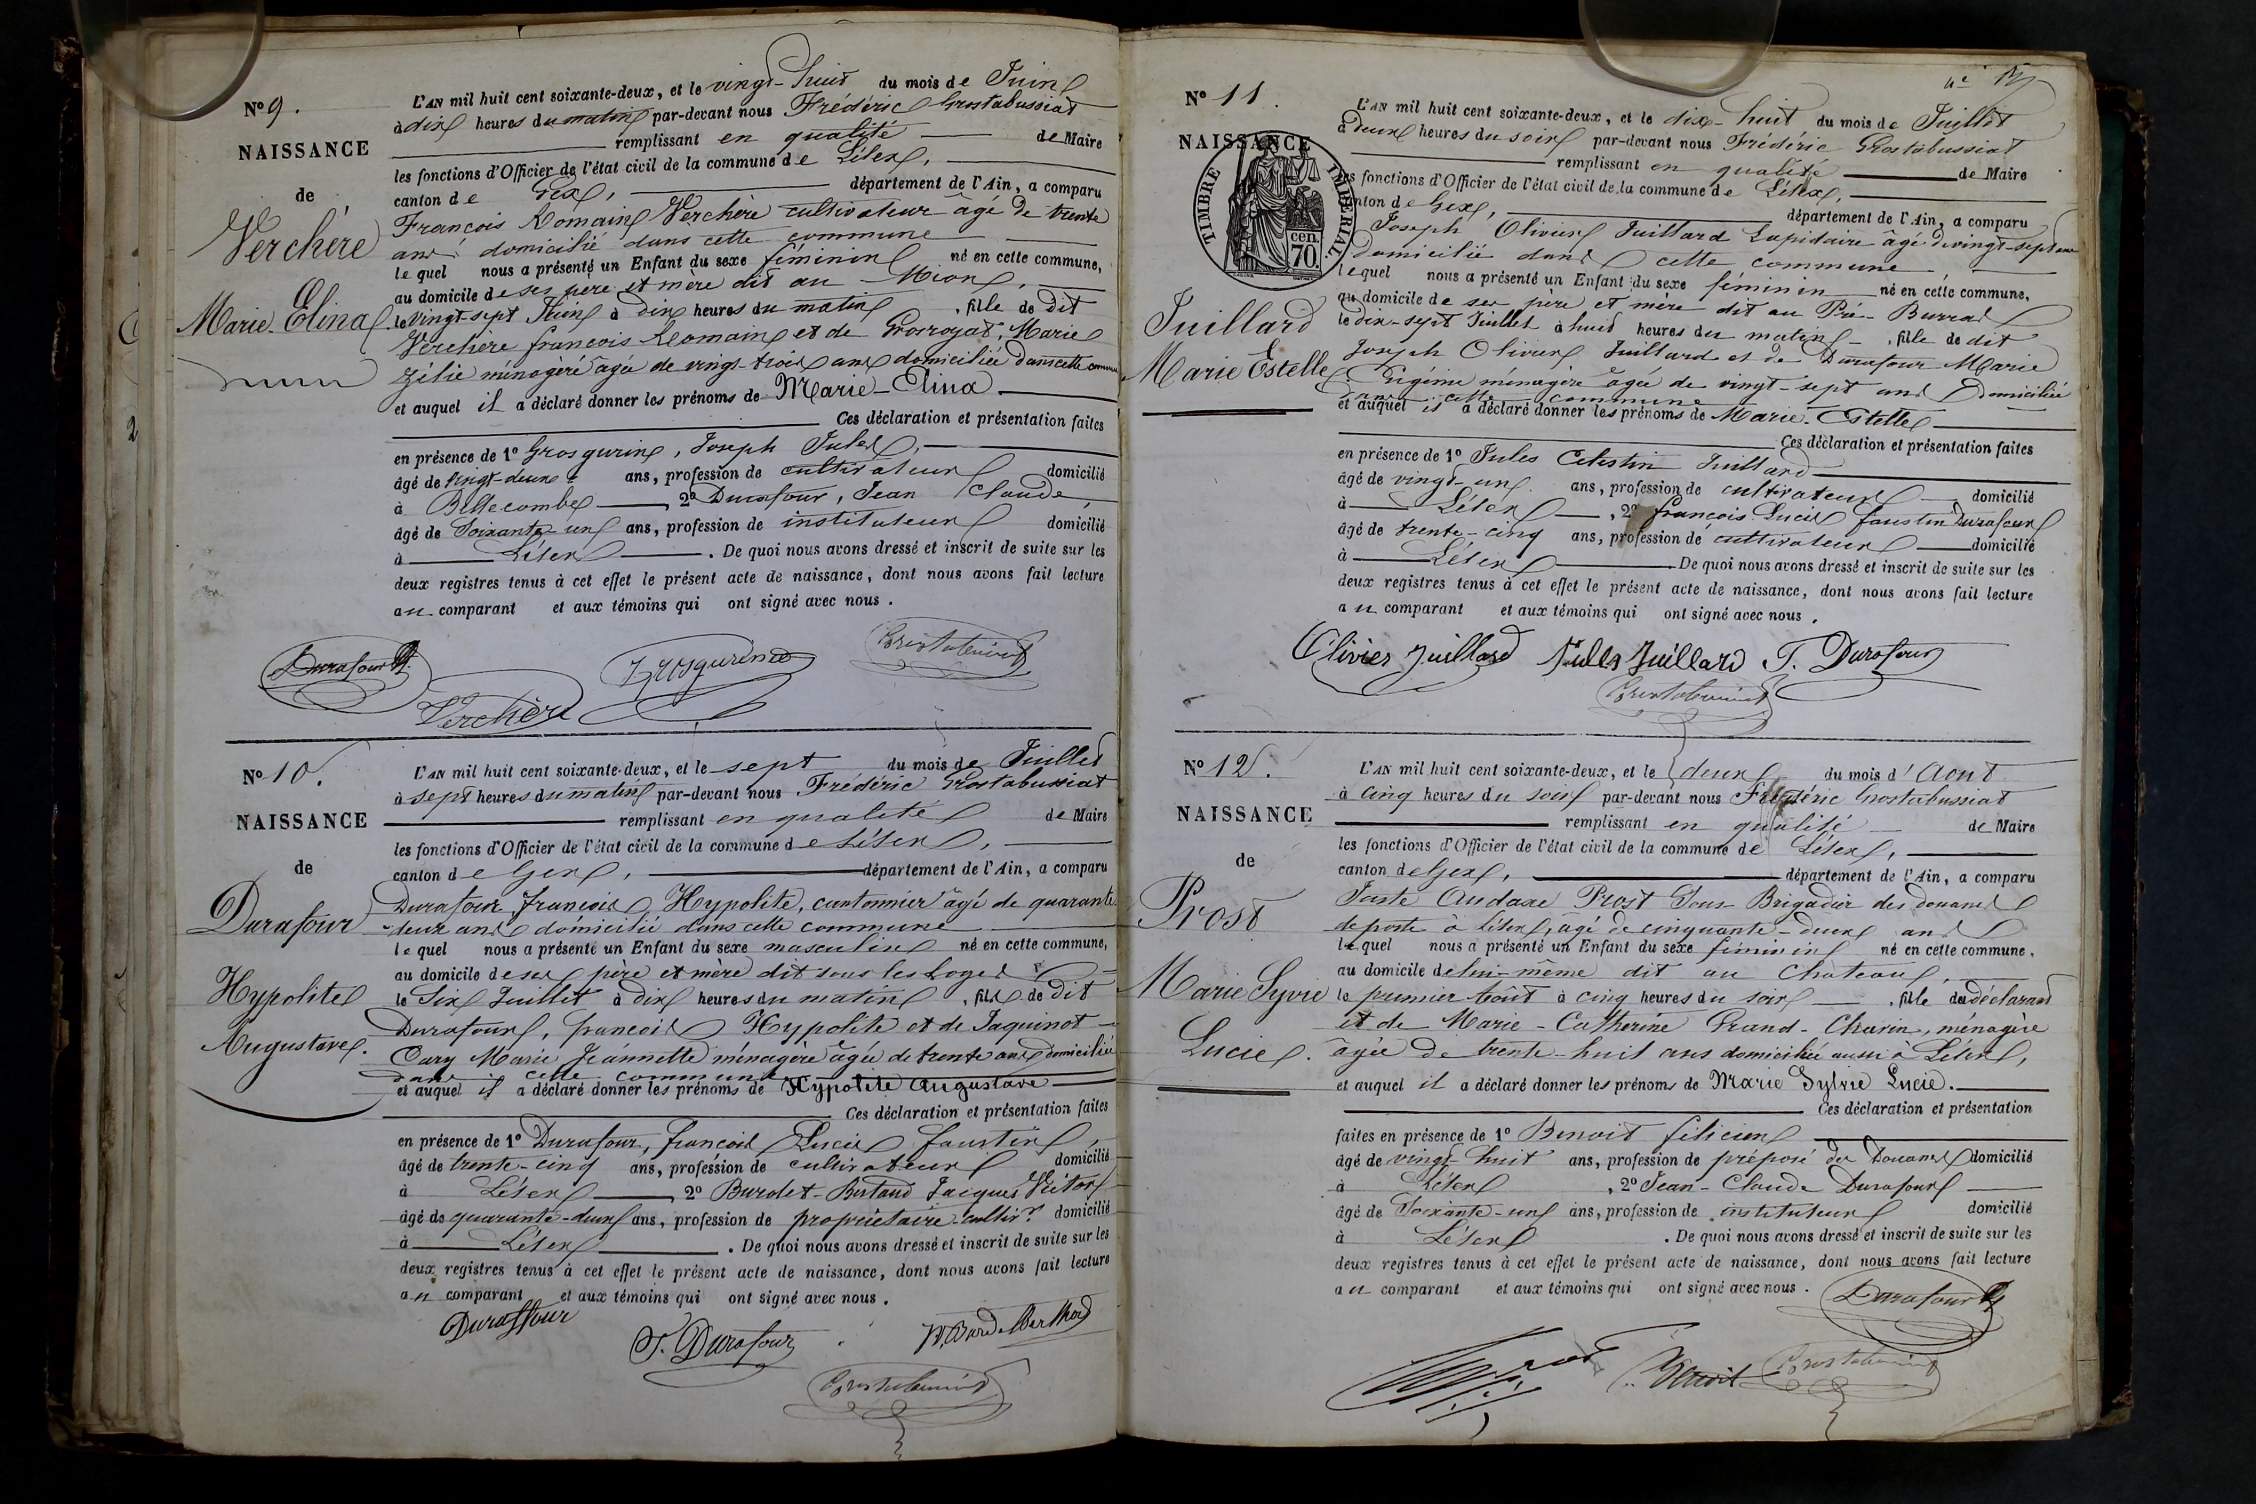 N° 9.
NAISSANCE
de
Verchère
Marie-Elina
L'AN mil huit cent soixante-deux, et le vingt-huit du mois de Juin
à dix heures du matin par-devant nous Frédéric Grostabussiat
remplissant en qualité de Maire
les fonctions d'Officier de l'état civil de la commune de Lélex,
canton de Gex, département de l'Ain, a comparu
François Romain Verchère cultivateur âgé de trente
ans domicilié dans cette commune
lequel nous a présenté un Enfant du sexe féminin né en cette commune,
au domicile de ses père et mère dit au Mion,
le vingt-sept Juin à dix heures du matin, fille de dit
Verchère françois Romain et de Grosroyat, Marie
Zélie ménagère âgée de vingt-trois ans domiciliée dans cette commune
et auquel il a déclaré donner les prénoms de Marie-Elina
Ces déclaration et présentation faites
en présence de 1° Grosgurin, Joseph Jules,
âgé de vingt-deux ans, profession de cultivateur domicilié
à Bellecombe, 2° Durafour, Jean Claude,
âgé de Soixante un ans, profession de instituteur domicilié
à Lélex. De quoi nous avons dressé et inscrit de suite sur les
deux registres tenus à cet effet le présent acte de naissance, dont nous avons fait lecture
au comparant et aux témoins qui ont signé avec nous.
Durafour
Verchère
Grosgurin
Grostabussiat
N° 10.
NAISSANCE
de
Durafour
Hypolite
Augustave.
L'AN mil huit cent soixante-deux, et le sept du mois de Juillet
à sept heures du matin par-devant nous Frédéric Grostabussiat
remplissant en qualité de Maire
les fonctions d'Officier de l'état civil de la commune de Lélex,
canton de Gex, département de l'Ain, a comparu
Durafour, françois Hypolite, cantonnier âgé de quarante
deux ans domicilié dans cette commune
lequel nous a présenté un Enfant du sexe masculin né en cette commune,
au domicile de ses père et mère dit sous les Loges
le Six Juillet à dix heures du matin, fils de dit
Durafour, françois Hypolite et de Jaquinot
Cary Marie Jeannette ménagère âgée de trente ans domiciliée
dans cette commune
et auquel il a déclaré donner les prénoms de Hypolite Augustave
Ces déclaration et présentation faites
en présence de 1° Durafour, françois Lucien faustin
âgé de trente-cinq ans, profession de cultivateur domicilié
à Lélex, 2° Burdet-Bertaud Jacques Victor
âgé de quarante-deux ans, profession de propriétaire-cultivr domicilié
à Lélex. De quoi nous avons dressé et inscrit de suite sur les
deux registres tenus à cet effet le présent acte de naissance, dont nous avons fait lecture
au comparant et aux témoins qui ont signé avec nous.
Duraffour
F. Durafour
Grostabussiat
N° 11.
NAISSANCE
TIMBRE IMPERIAL
70 cen.
Juillard
Marie Estelle
L'AN mil huit cent soixante-deux, et le dix-huit du mois de Juillet
à deux heures du soir par-devant nous Frédéric Grostabussiat
remplissant en qualité de Maire
les fonctions d'Officier de l'état civil de la commune de Lélex,
canton de Gex, département de l'Ain, a comparu
Joseph Olivier Juillard Lapidaire âgé de vingt-sept ans
domicilié dans cette commune
lequel nous a présenté un Enfant du sexe féminin né en cette commune,
au domicile de ses père et mère dit au Pré-Burrat
le dix-sept Juillet à huit heures du matin, fille de dit
Joseph Olivier Juillard et de Durafour Marie
Eugénie ménagère âgée de vingt-sept ans Domiciliée
dans cette commune
et auquel il a déclaré donner les prénoms de Marie-Estelle
Ces déclaration et présentation faites
en présence de 1° Jules Celestin Juillard
âgé de vingt-un ans, profession de cultivateur domicilié
à Lélex, 2° françois Lucien faustin Durafour
âgé de trente-cinq ans, profession de cultivateur domicilié
à Lélex. De quoi nous avons dressé et inscrit de suite sur les
deux registres tenus à cet effet le présent acte de naissance, dont nous avons fait lecture
au comparant et aux témoins qui ont signé avec nous.
Olivier Juillard Jules Juillard F. Durafour
Grostabussiat
N° 12.
NAISSANCE
de
Prost
Marie Sylvie
Lucie.
L'AN mil huit cent soixante-deux, et le deux du mois d'Aout
à cinq heures du soir par-devant nous Frédéric Grostabussiat
remplissant en qualité de Maire
les fonctions d'Officier de l'état civil de la commune de Lélex,
canton de Gex, département de l'Ain, a comparu
Juste Audaxe Prost Sous-Brigadier des douanes
de poste à Lélex, âgé de cinquante-deux ans
lequel nous a présenté un Enfant du sexe féminin né en cette commune,
au domicile de lui-même dit au Chateau,
le premier Août à cinq heures du soir, fille du déclarant
et de Marie-Catherine Grand-Chavin, ménagère
âgée de trente-huit ans domiciliée aussi à Lélex,
et auquel il a déclaré donner les prénoms de Marie Sylvie Lucie.
Ces déclaration et présentation
faites en présence de 1° Benoit félicien
âgé de vingt-huit ans, profession de préposé des Douanes domicilié
à Lélex, 2° Jean-Claude Durafour
âgé de Soixante-un ans, profession de instituteur domicilié
à Lélex. De quoi nous avons dressé et inscrit de suite sur les
deux registres tenus à cet effet le présent acte de naissance, dont nous avons fait lecture
au comparant et aux témoins qui ont signé avec nous.
Durafour
Benoit
Grostabussiat